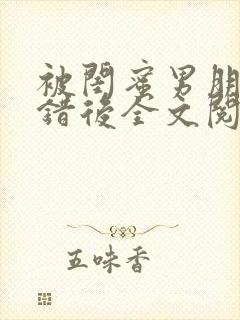 被閨蜜男朋
錯後全文閱
五味香